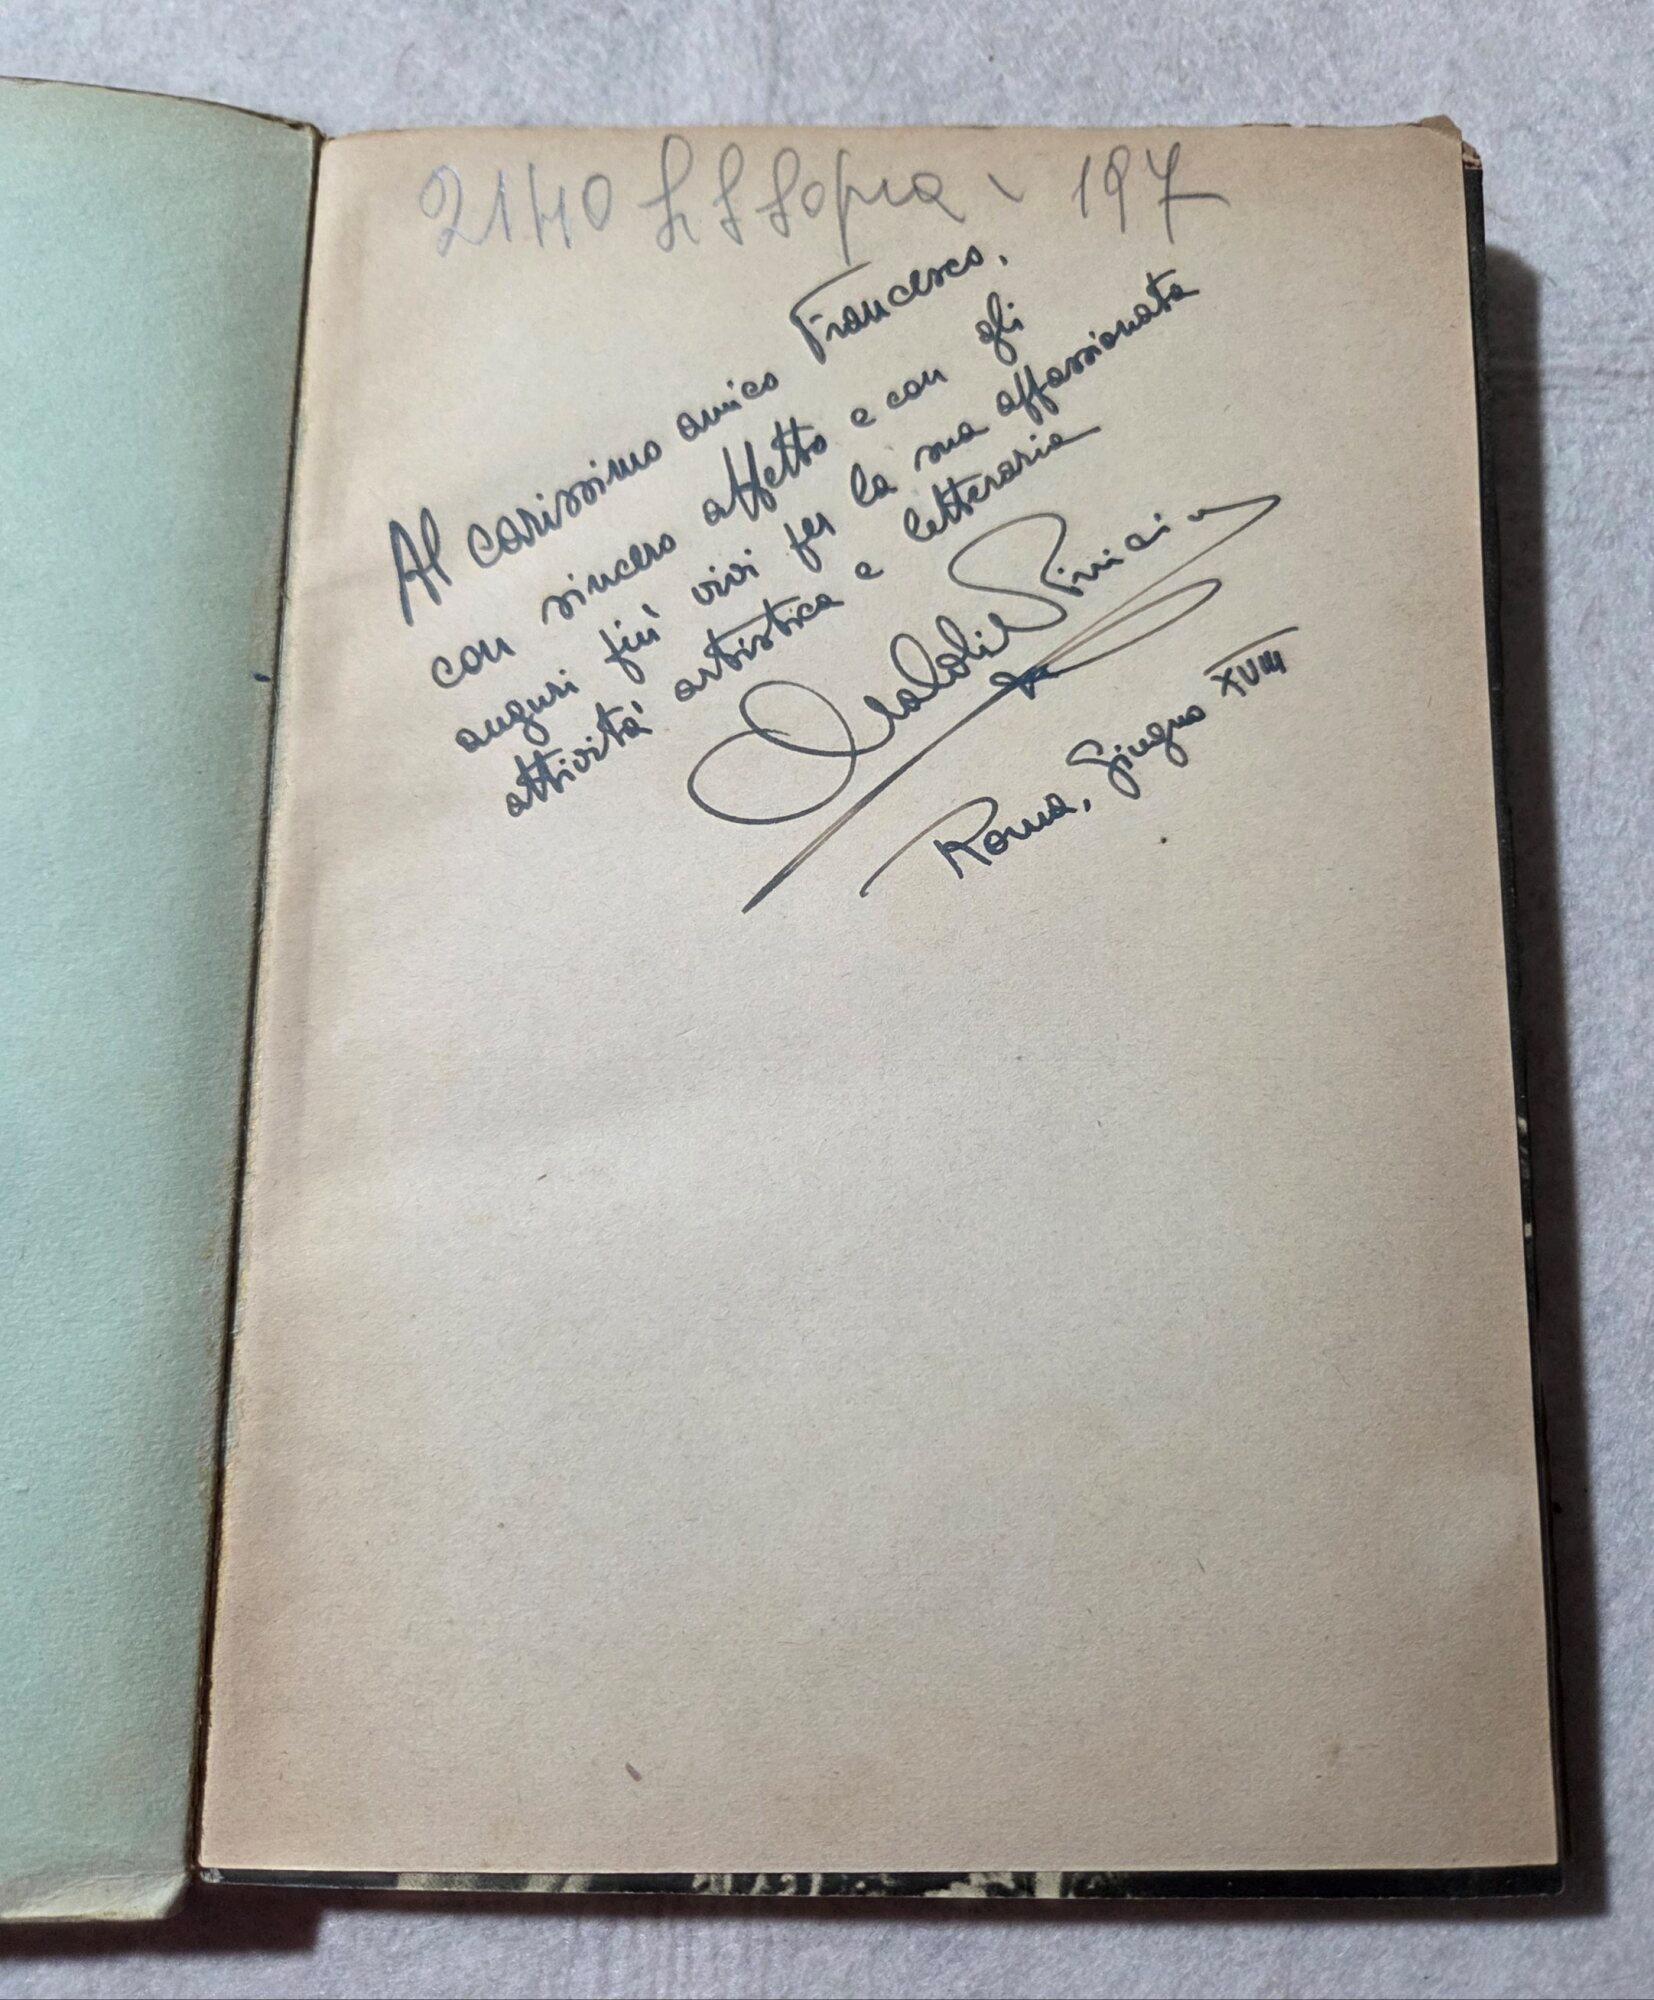 2140
197
Al carissimo amico Francesco,
con sincero affetto e con gli
auguri più vivi per la sua appassionata
attività artistica e letteraria
Roma, Giugno XVIII